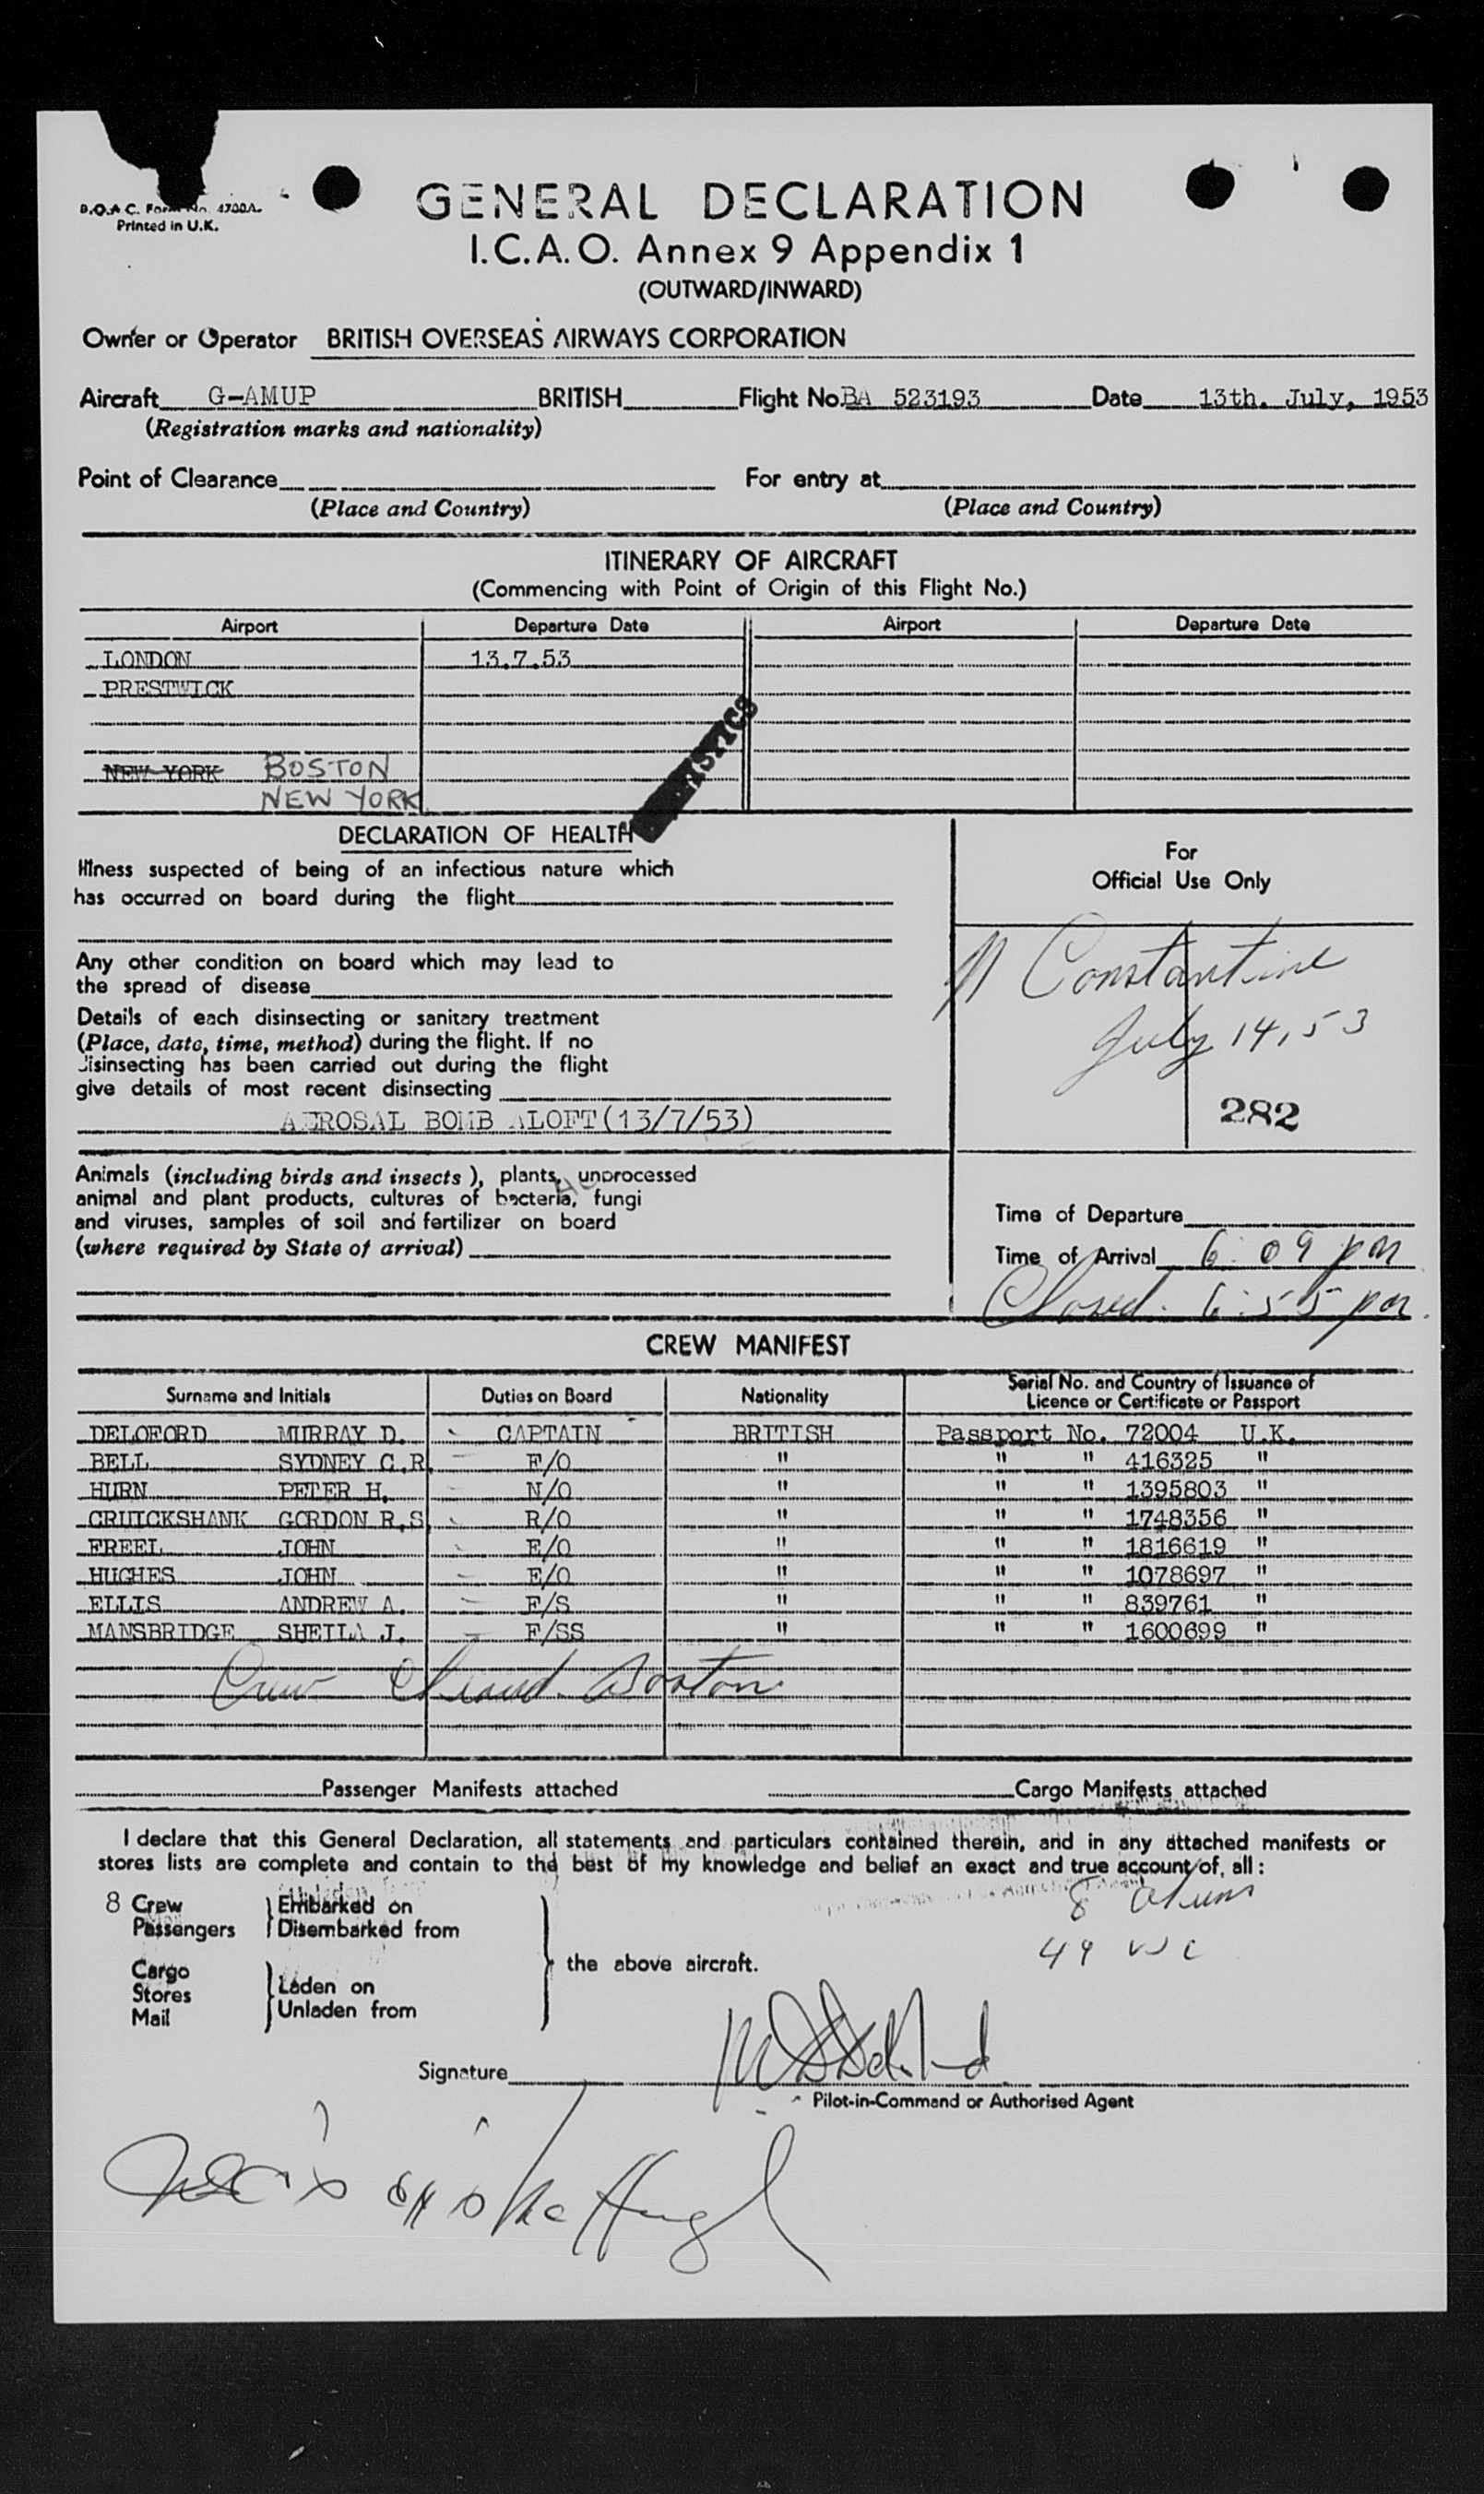 B.O.A.C. Form No. 4700A.
Printed in U.K.
GENERAL DECLARATION
I.C.A.O. Annex 9 Appendix 1
(OUTWARD/INWARD)
Owner or Operator BRITISH OVERSEAS AIRWAYS CORPORATION
Aircraft G-AMUP BRITISH Flight No. BA 523193 Date 13th. July, 1953
(Registration marks and nationality)
Point of Clearance For entry at
(Place and Country) (Place and Country)
ITINERARY OF AIRCRAFT
(Commencing with Point of Origin of this Flight No.)
Airport Departure Date Airport Departure Date
LONDON 13.7.53
PRESTWICK
NEW YORK BOSTON
NEW YORK
DECLARATION OF HEALTH
Illness suspected of being of an infectious nature which
has occurred on board during the flight
Any other condition on board which may lead to
the spread of disease
Details of each disinsecting or sanitary treatment
(Place, date, time, method) during the flight. If no
disinsecting has been carried out during the flight
give details of most recent disinsecting
AEROSAL BOMB ALOFT(13/7/53)
Animals (including birds and insects), plants, unprocessed
animal and plant products, cultures of bacteria, fungi
and viruses, samples of soil and fertilizer on board
(where required by State of arrival)
For
Official Use Only
Constantine
July 14, 53
282
Time of Departure
Time of Arrival 6:09 pm
Closed. 6:55 pm.
CREW MANIFEST
Surname and Initials Duties on Board Nationality Serial No. and Country of Issuance of
Licence or Certificate or Passport
DELOFORD MURRAY D. CAPTAIN BRITISH Passport No. 72004 U.K.
BELL SYDNEY C.R. F/O " " " 416325 "
HURN PETER H. N/O " " " 1395803 "
CRUICKSHANK GORDON R.S. R/O " " " 1748356 "
FREEL JOHN E/O " " " 1816619 "
HUGHES JOHN E/O " " " 1078697 "
ELLIS ANDREW A. F/S " " " 839761 "
MANSBRIDGE SHEILA J. F/SS " " " 1600699 "
Crew Cleared. Boston
Passenger Manifests attached Cargo Manifests attached
I declare that this General Declaration, all statements and particulars contained therein, and in any attached manifests or
stores lists are complete and contain to the best of my knowledge and belief an exact and true account of, all:
8 Crew Embarked on
Passengers Disembarked from
8 aliens
49
the above aircraft.
Cargo
Stores Laden on
Mail Unladen from
Signature
Pilot-in-Command or Authorised Agent